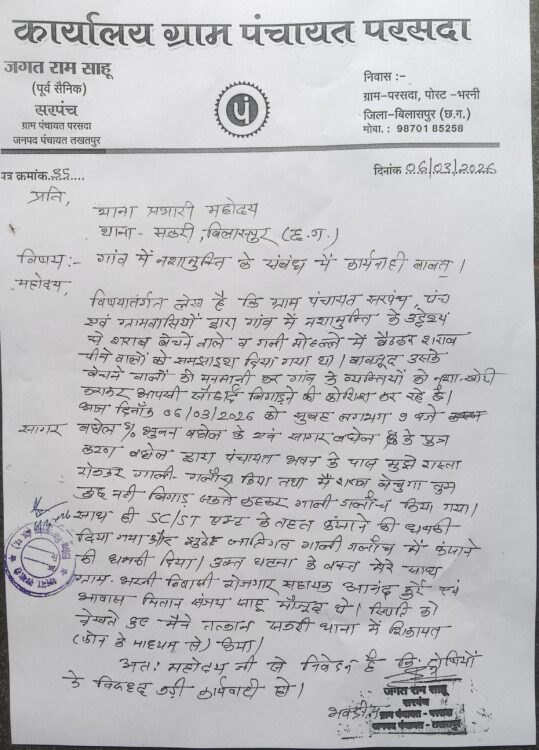 कार्यालय ग्राम पंचायत परसदा
जगत राम साहू
(पूर्व सैनिक)
सरपंच
ग्राम पंचायत परसदा
जनपद पंचायत तखतपुर
निवास :-
ग्राम-परसदा, पोस्ट -भरनी
जिला-बिलासपुर (छ.ग.)
मोबा. : 98701 85258
पत्र क्रमांक.55
दिनांक 06/03/2026
प्रति,
थाना प्रभारी महोदय
थाना- सकरी, बिलासपुर (छ.ग.)
विषय:- गांव में नशामुक्ति के संबंध में कार्यवाही बाबत्।
महोदय,
विषयांतर्गत लेख है कि ग्राम पंचायत सरपंच, पंच
एवं ग्रामवासियों द्वारा गांव में नशामुक्ति के उद्देश्य
से शराब बेचने वाले व गली मोहल्ले में बैठकर शराब
पीने वालों को समझाइश दिया गया था। बावजूद उसके
बेचने वालों की मनमानी कर गांव के व्यक्तियों को नशा-खोरी
कराकर आपसी सौहार्द बिगाड़ने की कोशिश कर रहे हैं।
आज दिनाँक 06/03/2026 को सुबह लगभग 9 बजे
सागर बघेल % भुवन बघेल के एवं सागर बघेल के पुत्र
करण बघेल द्वारा पंचायत भवन के पास मुझे रास्ता
रोककर गाली-गलौच किया तथा मैं शराब बेचुंगा तुम
कुछ नहीं बिगाड़ सकते कहकर गाली गलौच किया गया।
साथ ही SC/ST एक्ट के तहत फंसाने की धमकी
दिया गया और जातिगत गाली गलौच में फंसाने
की धमकी दिया। उक्त घटना के वक्त मेरे साथ
ग्राम- भरनी निवासी रोजगार सहायक आनंद कुर्रे एवं
आवास मितान संजय साहू मौजूद थे। स्थिति को
देखते हुए मैंने तत्काल सकरी थाना में शिकायत
(फोन के माध्यम से) किया।
अतः महोदय जी से निवेदन है कि दोषियों
के विरूद्ध कड़ी कार्यवाही हो।
भवदीय
जगत राम साहू
सरपंच
ग्राम पंचायत - परसदा
जनपद पंचायत - तखतपुर